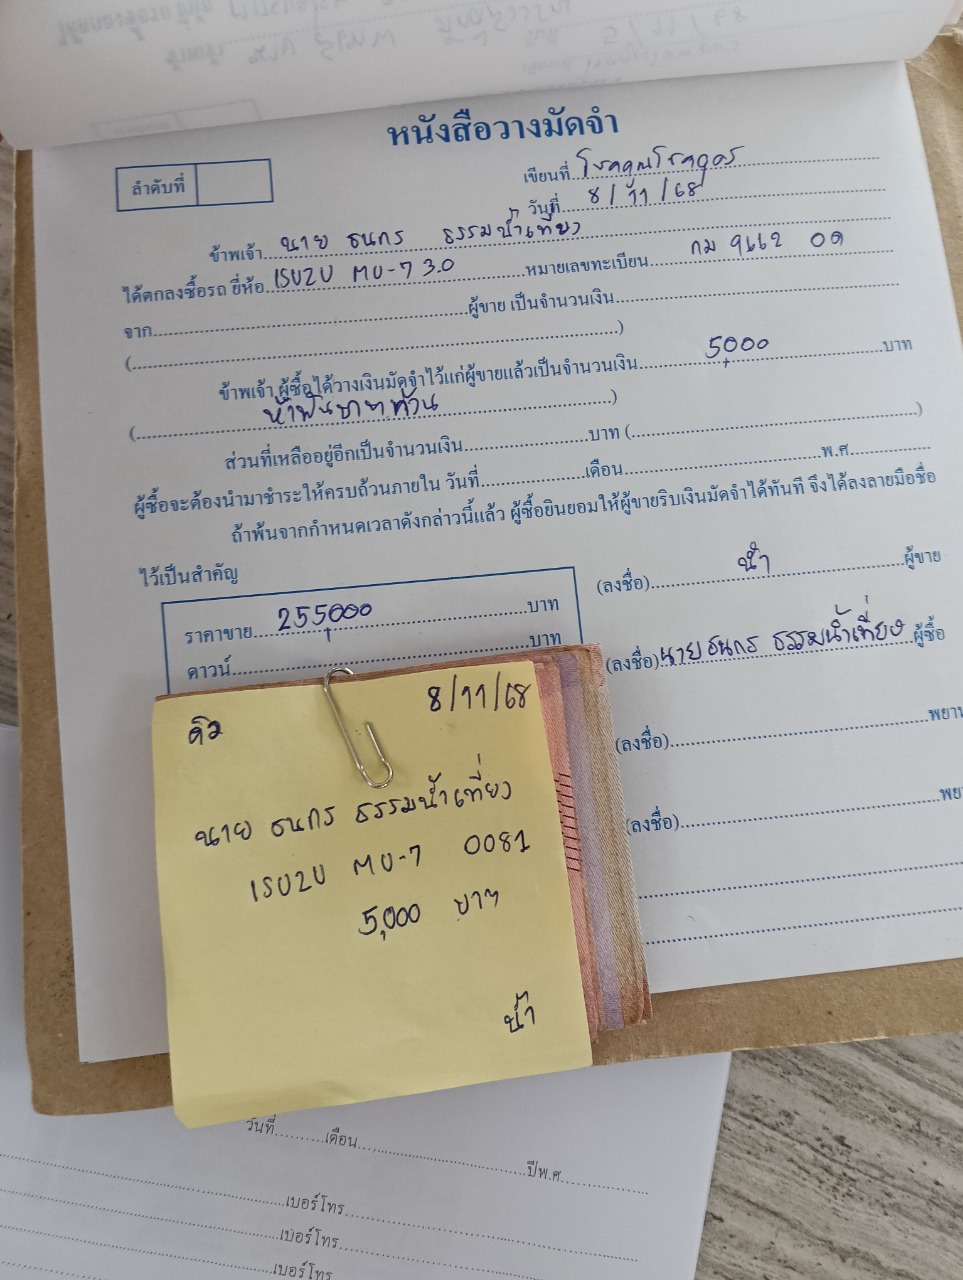 หนังสือวางมัดจำ
ลำดับที่
เขียนที่
วันที่ 8/11/68
ข้าพเจ้า นาย ธนกร ธรรมน้ำเที่ยง
ได้ตกลงซื้อรถ ยี่ห้อ ISUZU MU-7 3.0 หมายเลขทะเบียน กม 9662
จาก ผู้ขาย เป็นจำนวนเงิน
( )
ข้าพเจ้า ผู้ซื้อได้วางเงินมัดจำไว้แก่ผู้ขายแล้วเป็นจำนวนเงิน 5,000 บาท
( ห้าพันบาทถ้วน )
ส่วนที่เหลืออยู่อีกเป็นจำนวนเงิน บาท ( )
ผู้ซื้อจะต้องนำมาชำระให้ครบถ้วนภายใน วันที่ เดือน พ.ศ.
ถ้าพ้นจากกำหนดเวลาดังกล่าวนี้แล้ว ผู้ซื้อยินยอมให้ผู้ขายริบเงินมัดจำได้ทันที จึงได้ลงลายมือชื่อ
ไว้เป็นสำคัญ
(ลงชื่อ) น้ำ ผู้ขาย
ราคาขาย 255,000 บาท
(ลงชื่อ) นาย ธนกร ธรรมน้ำเที่ยง ผู้ซื้อ
ดาวน์ บาท
(ลงชื่อ) พยาน
(ลงชื่อ) พยา
8/11/68
นาย ธนกร ธรรมน้ำเที่ยง
ISUZU MU-7 0081
5,000 บาท
น้ำ
วันที่ เดือน ปีพ.ศ.
เบอร์โทร
เบอร์โทร
เบอร์โทร